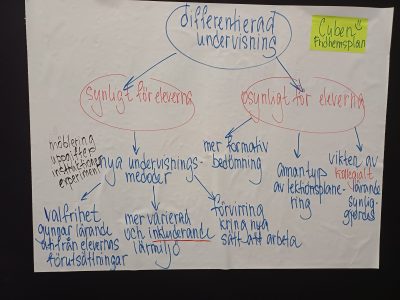 differentierad
undervisning
Cyben
Fridhemsplan
synligt för eleverna
osynligt för eleverna
möblering
uppgifter
instruktioner
experiment
nya undervisnings-
medoder
mer formativ
bedömning
annan typ
av lektionsplane-
ring
vikten av
kollegialt
lärande
synlig-
gjordes
valfrihet
gungar lärande
utifrån elevernas
förutsättningar
mer varierad
och inkluderande
lärmiljö
förvirring
kring nya
sätt att arbeta